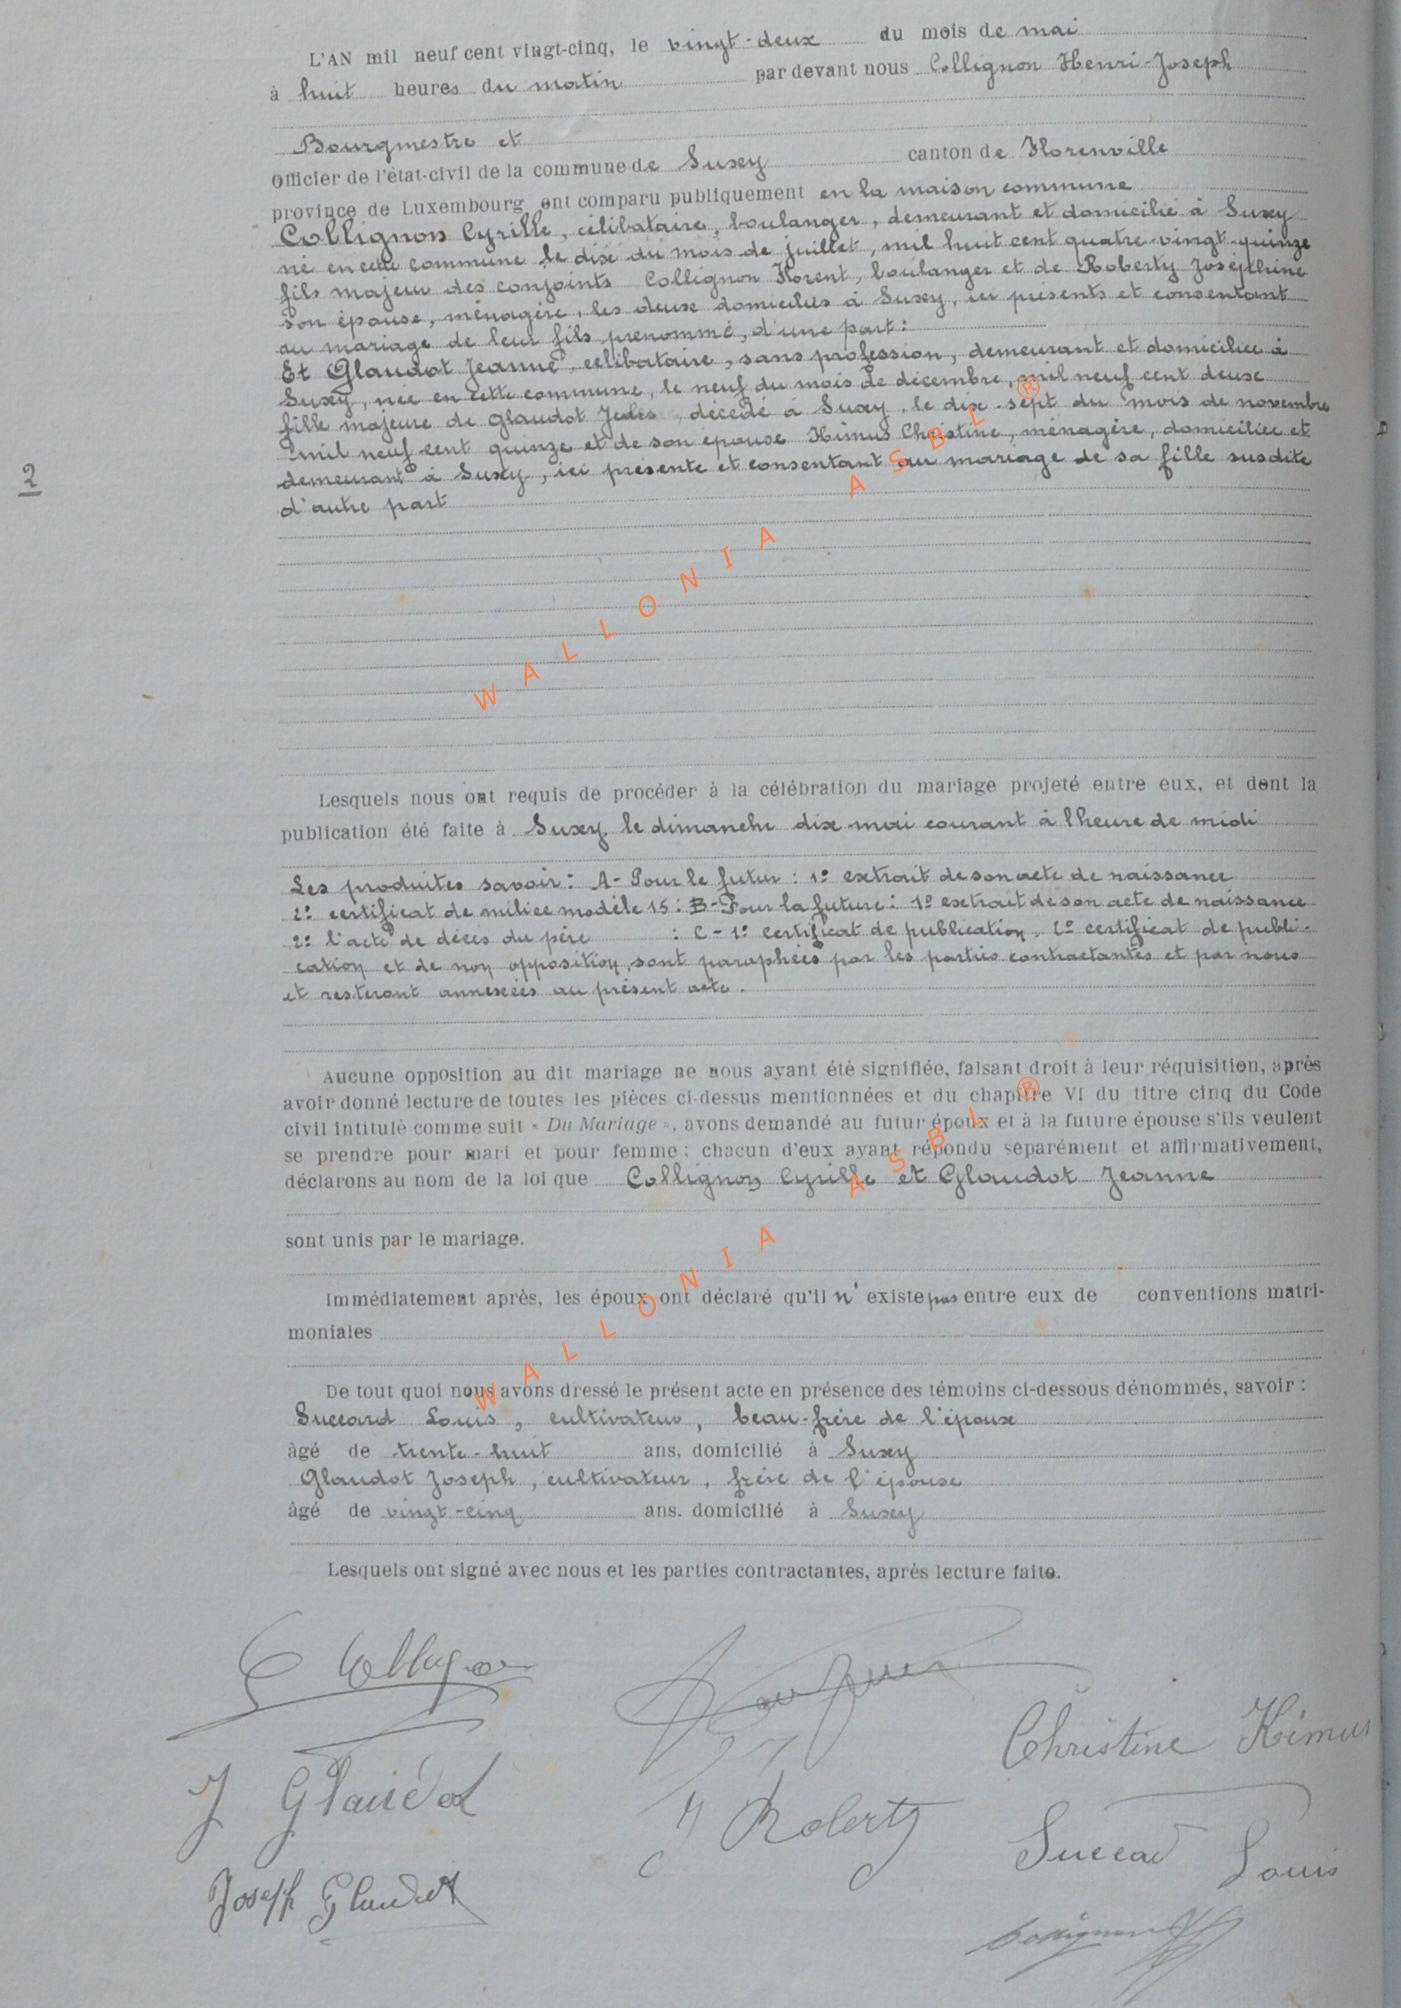 L'AN mil neuf cent vingt-cinq, le vingt-deux du mois de mai
à huit heures du matin par devant nous Collignon Henri-Joseph
Bourgmestre et
Officier de l'état-civil de la commune de Suxy canton de Florenville
province de Luxembourg ont comparu publiquement en la maison commune
Collignon Cyrille, célibataire, boulanger, demeurant et domicilié à Suxy
né en cette commune le dix du mois de juillet, mil huit cent quatre-vingt-quinze
fils majeur des conjoints Collignon Florent, boulanger et de Roberty Joséphine
son épouse, ménagère, les deux domiciliés à Suxy, ici présents et consentant
au mariage de leur fils prénommé, d'une part:
Et Glaudot Jeanne, célibataire, sans profession, demeurant et domiciliée à
Suxy, née en cette commune, le neuf du mois de décembre, mil neuf cent deux
fille majeure de Glaudot Jules décédé à Suxy, le dix-sept du mois de novembre
mil neuf cent quinze et de son épouse Himus Christine, ménagère, domiciliée et
demeurant à Suxy, ici présente et consentant au mariage de sa fille susdite
d'autre part
2
Lesquels nous ont requis de procéder à la célébration du mariage projeté entre eux, et dont la
publication été faite à Suxy le dimanche dix mai courant à l'heure de midi
Les produites savoir: A- Pour le futur: 1° extrait de son acte de naissance
2° certificat de milice modèle 15: B- Pour la future: 1° extrait de son acte de naissance
2° l'acte de décès du père : C- 1° certificat de publication, 2° certificat de publi-
cation et de non opposition, sont paraphées par les parties contractantes et par nous
et resteront annexées au présent acte.
Aucune opposition au dit mariage ne nous ayant été signifiée, faisant droit à leur réquisition, après
avoir donné lecture de toutes les pièces ci-dessus mentionnées et du chapitre VI du titre cinq du Code
civil intitulé comme suit « Du Mariage », avons demandé au futur époux et à la future épouse s'ils veulent
se prendre pour mari et pour femme; chacun d'eux ayant répondu séparément et affirmativement,
déclarons au nom de la loi que Collignon Cyrille et Glaudot Jeanne
sont unis par le mariage.
Immédiatement après, les époux ont déclaré qu'il n'existe pas entre eux de conventions matri-
moniales
De tout quoi nous avons dressé le présent acte en présence des témoins ci-dessous dénommés, savoir:
Succard Louis, cultivateur, beau-frère de l'époux
âgé de trente-huit ans, domicilié à Suxy
Glaudot Joseph, cultivateur, frère de l'épouse
âgé de vingt-cinq ans. domicilié à Suxy
Lesquels ont signé avec nous et les parties contractantes, après lecture faite.
C Collignon
Christine Himus
J Glaudot
J Roberty
Succard Louis
Joseph Glaudot
Collignon
WALLONIA ASBL ®
WALLONIA ASBL ®